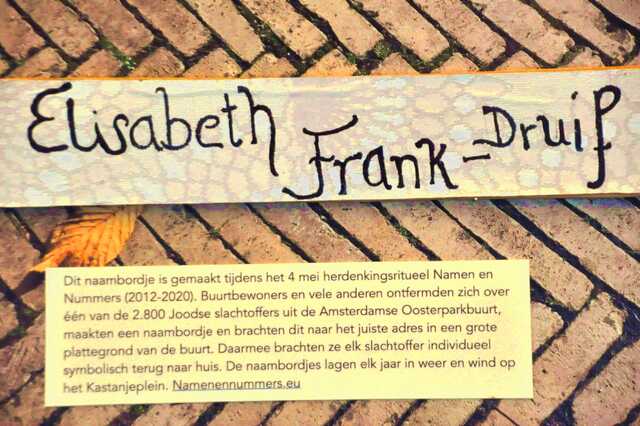 Elisabeth
Frank-Druif
Dit naambordje is gemaakt tijdens het 4 mei herdenkingsritueel Namen en
Nummers (2012-2020). Buurtbewoners en vele anderen ontfermden zich over
één van de 2.800 Joodse slachtoffers uit de Amsterdamse Oosterparkbuurt,
maakten een naambordje en brachten dit naar het juiste adres in een grote
plattegrond van de buurt. Daarmee brachten ze elk slachtoffer individueel
symbolisch terug naar huis. De naambordjes lagen elk jaar in weer en wind op
het Kastanjeplein. Namenennummers.eu